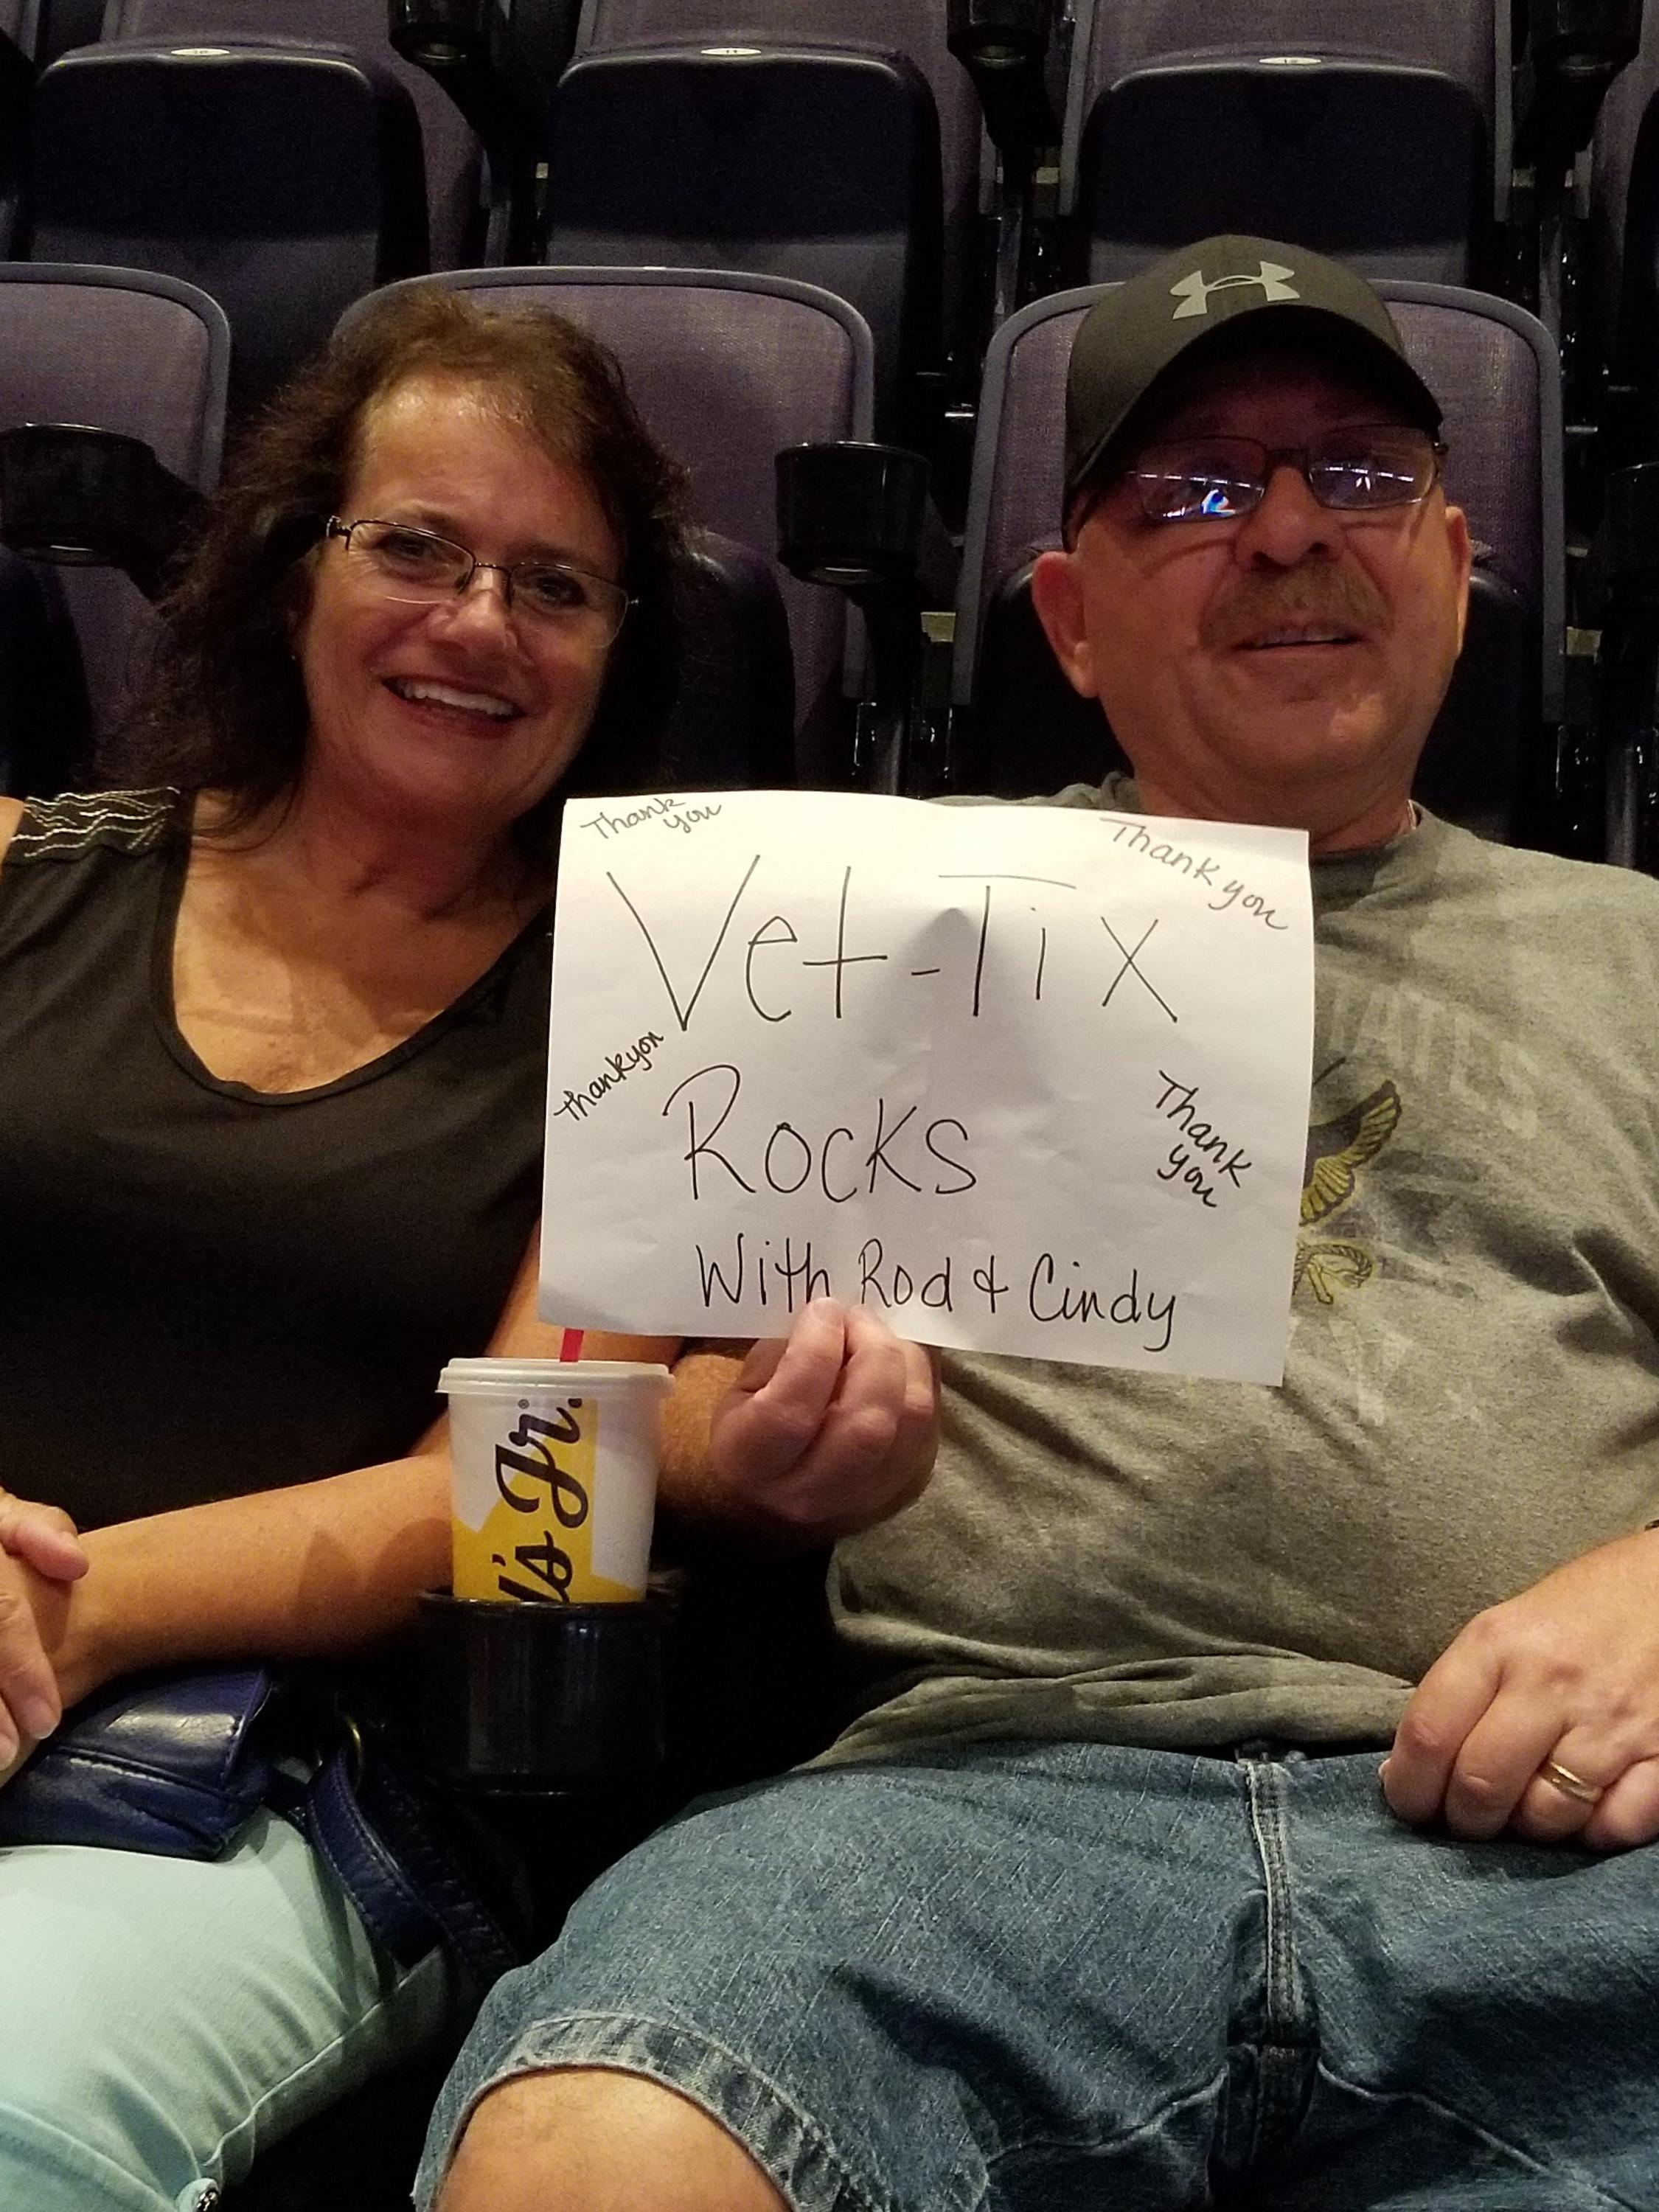 Thank
you
Thank you
Vet-Tix
Thankyou
Rocks
Thank
you
With Rod & Cindy
's Jr.